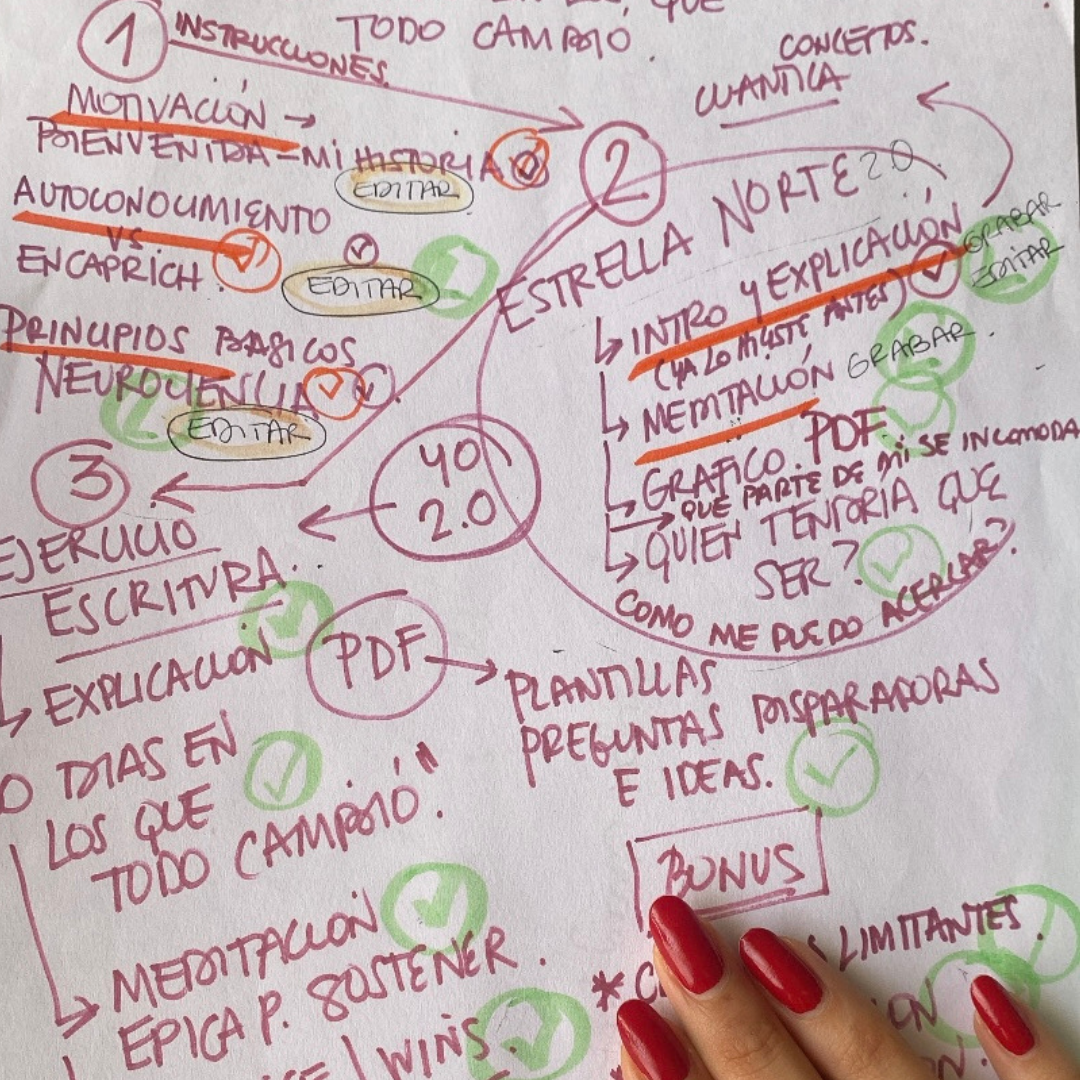 QUE
TODO CAMBIÓ.
1 INSTRUCCIONES.
MOTIVACIÓN →
BIENVENIDA - MI HISTORIA
EDITAR
AUTOCONOCIMIENTO
VS
ENCAPRICH.
EDITAR
PRINCIPIOS BASICOS
NEUROCIENCIA
EDITAR
CONCEPTOS.
CUANTICA
2
ESTRELLA NORTE 2.0
INTRO Y EXPLICACIÓN
GRABAR
EDITAR
(YA LO HICISTE ANTES)
MEDITACIÓN GRABAR.
GRAFICO. PDF
→ QUE PARTE DE MI SE INCOMODA
QUIEN TENDRIA QUE
SER?
COMO ME PUEDO ACERCAR?
40
2.0
3
EJERCICIO
ESCRITURA...
EXPLICACIÓN
PDF →
PLANTILLAS
PREGUNTAS DISPARADORAS
E IDEAS.
0 DIAS EN
LOS QUE
TODO CAMBIÓ."
MEDITACION
EPICA P. SOSTENER.
WINS.
BONUS
LIMITANTES.
* C
ON
ON.